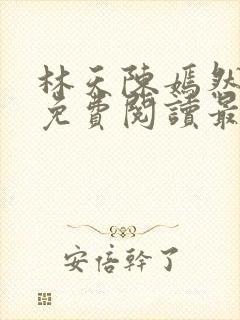 林天陳嫣然
免費閱讀最
安倍幹了